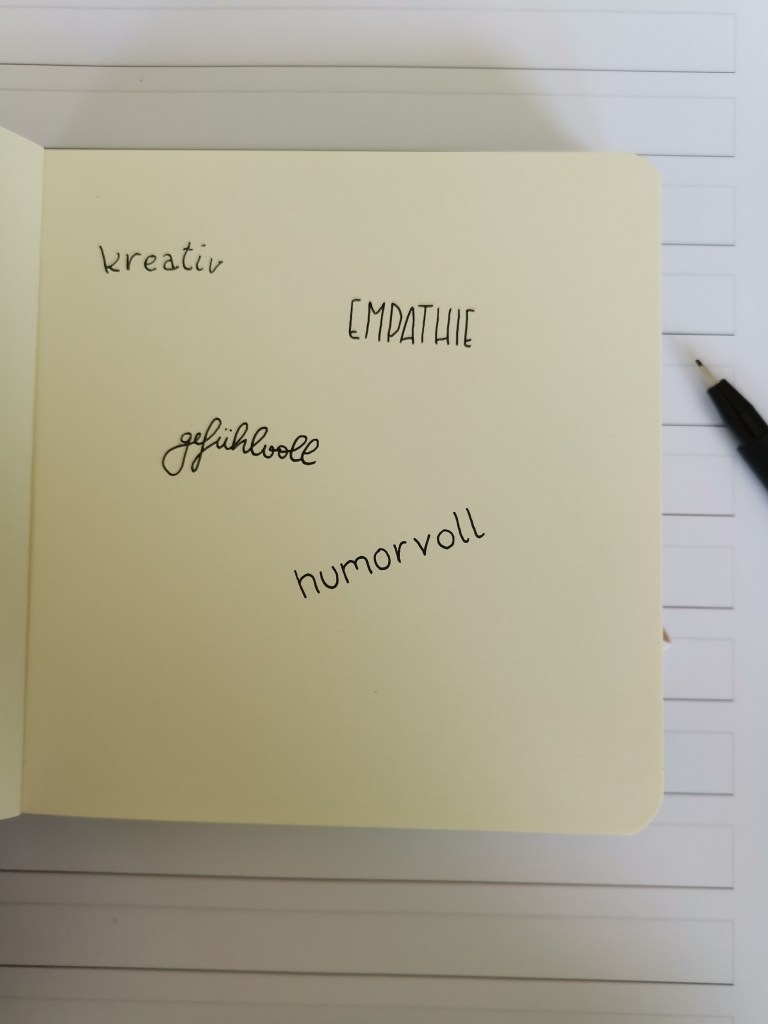 kreativ
EMPATHIE
gefühlvoll
humorvoll